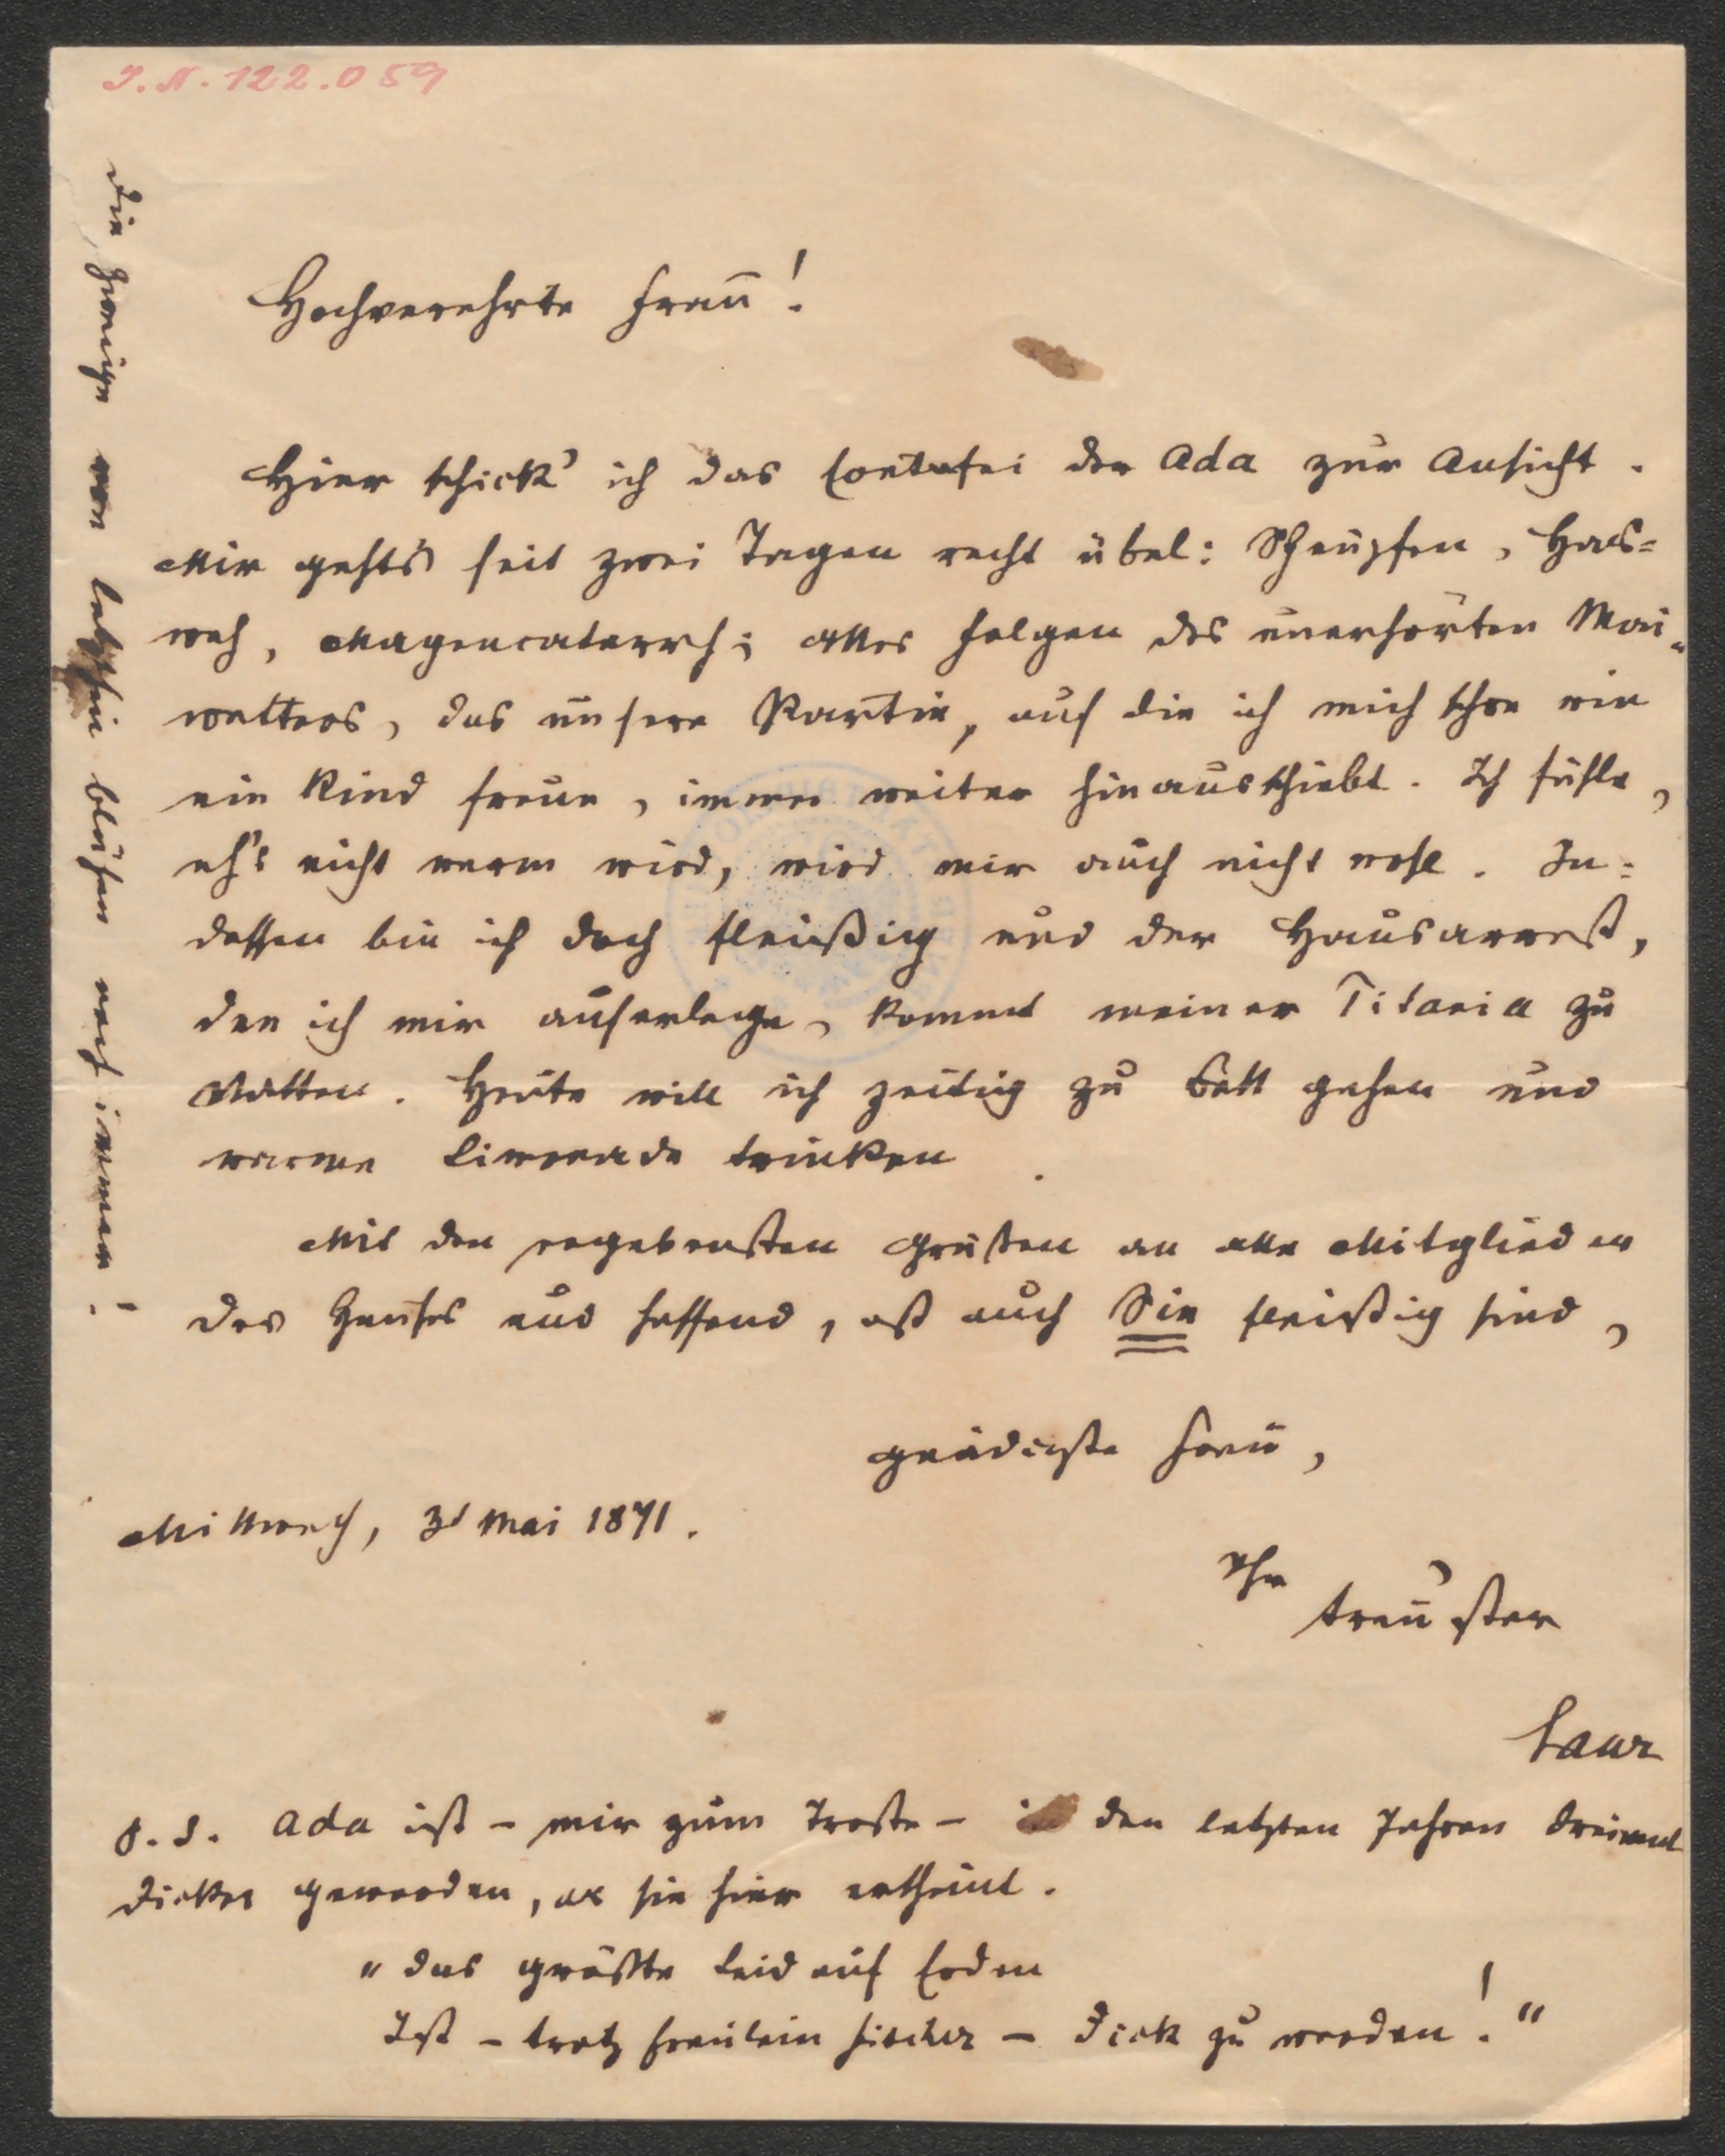 I.N. 122.059
Hochverehrte Frau!
Hier schick' ich das Conterfei der Ada zur Ansicht.
Mir geht's seit zwei Tagen recht übel: Schnupfen, Hals=
weh, Magencatarrh; alles Folgen des unerhörten Mai=
wetters, das unsere Partie, auf die ich mich schon wie
ein Kind freue, immer weiter hinausschiebt. Ich fühle,
eh's nicht warm wird, wird mir auch nicht wohl. In=
dessen bin ich doch fleißig und der Hausarrest,
den ich mir auferlege, kommt meiner Titania zu
Statten. Heute will ich zeitig zu Bett gehen und
warme Limonade trinken.
Mit den ergebensten Grüßen an alle Mitglieder
des Hauses und hoffend, daß auch Sie fleißig sind,
gnädigste Frau,
Mittwoch, 31 Mai 1871.
Ihr
treu'ster
P.S. Ada ist – mir zum Troste – in den letzten Jahren dreimal
dicker geworden, als sie hier erscheint.
"Das größte Leid auf Erden
Ist – trotz Fräulein Fischer – dick zu werden!"
Die Zweige von letzthin blühen noch immer!